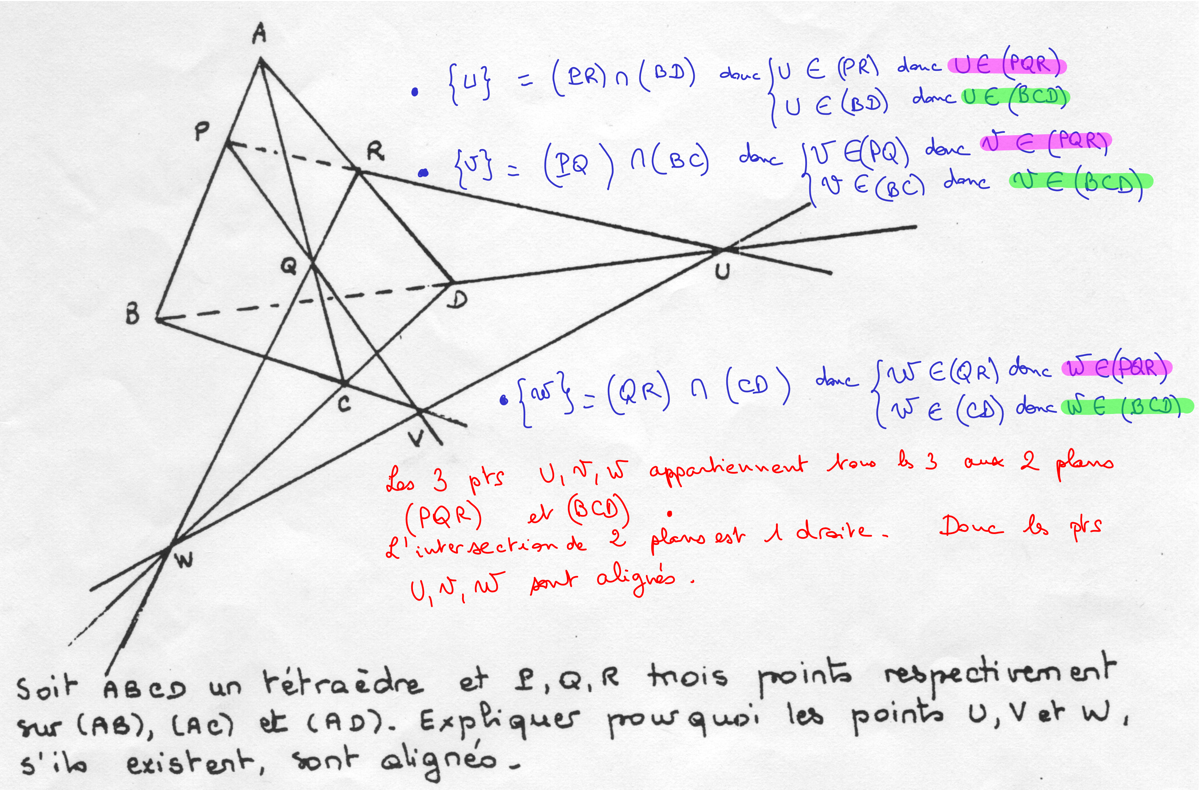 A
P
R
Q
B
D
U
C
V
W
• {U} = (PR) ∩ (BD) donc { U ∈ (PR) donc U ∈ (PQR)
U ∈ (BD) donc U ∈ (BCD)
• {V} = (PQ) ∩ (BC) donc { V ∈ (PQ) donc V ∈ (PQR)
V ∈ (BC) donc V ∈ (BCD)
• {W} = (QR) ∩ (CD) donc { W ∈ (QR) donc W ∈ (PQR)
W ∈ (CD) donc W ∈ (BCD)
Les 3 pts U, V, W appartiennent tous les 3 aux 2 plans
(PQR) et (BCD).
L'intersection de 2 plans est 1 droite. Donc les pts
U, V, W sont alignés.
Soit ABCD un tétraèdre et P, Q, R trois points respectivement
sur (AB), (AC) et (AD). Expliquer pourquoi les points U, V et W,
s'ils existent, sont alignés.